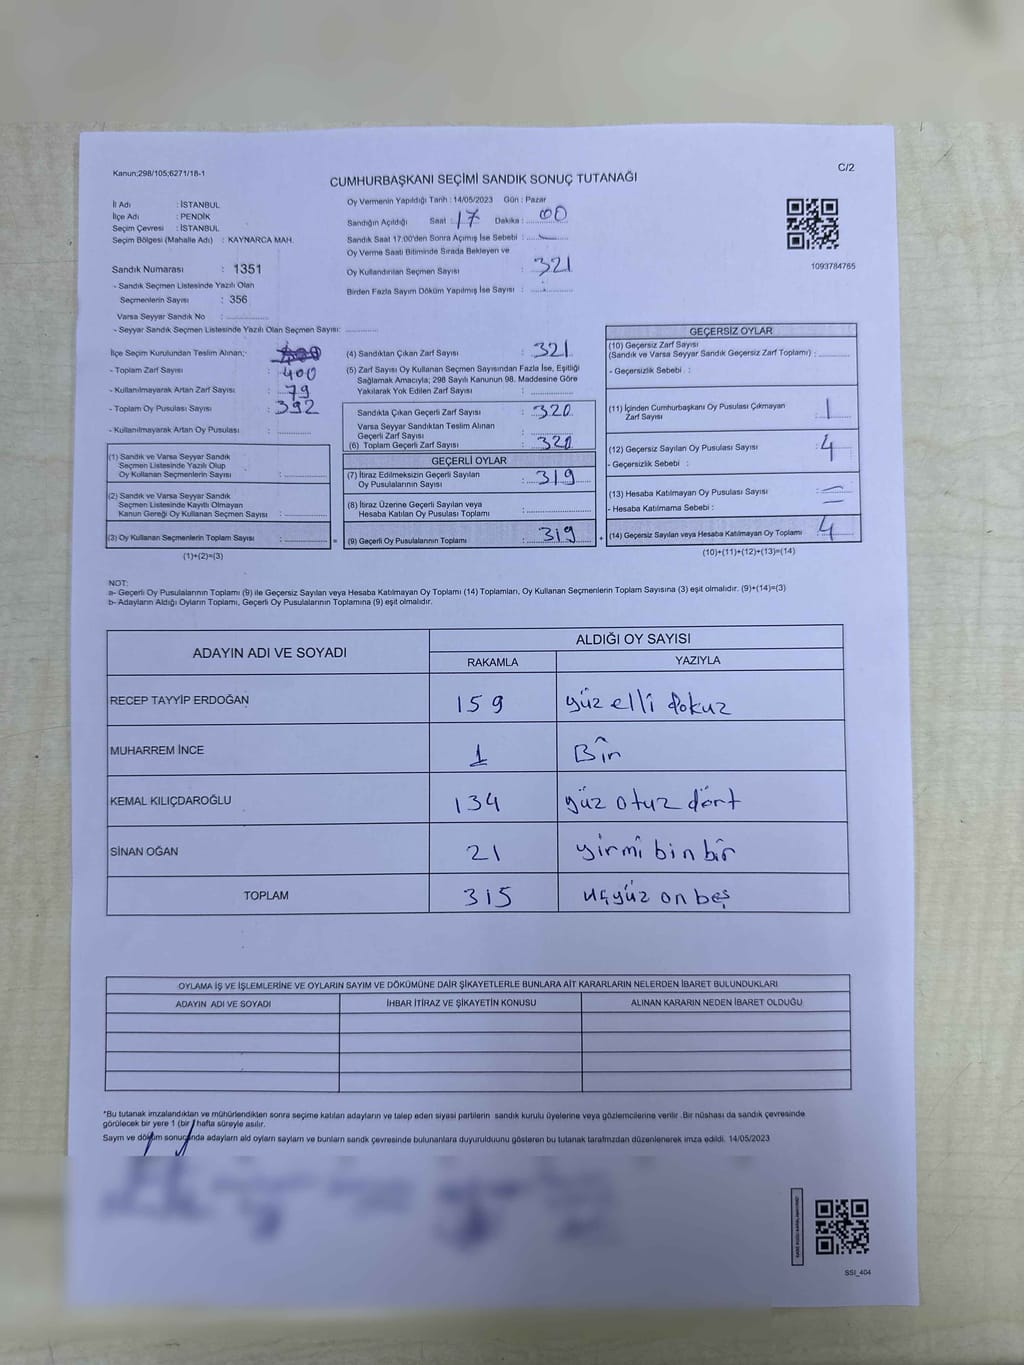 Kanun;298/105;6271/18-1
C/2
CUMHURBAŞKANI SEÇİMİ SANDIK SONUÇ TUTANAĞI
İl Adı : İSTANBUL
İlçe Adı : PENDİK
Seçim Çevresi : İSTANBUL
Seçim Bölgesi (Mahalle Adı) : KAYNARCA MAH.
Sandık Numarası : 1351
- Sandık Seçmen Listesinde Yazılı Olan
Seçmenlerin Sayısı : 356
Varsa Seyyar Sandık No :
- Seyyar Sandık Seçmen Listesinde Yazılı Olan Seçmen Sayısı:
Oy Vermenin Yapıldığı Tarih : 14/05/2023 Gün : Pazar
Sandığın Açıldığı Saat : 17 Dakika : 00
Sandık Saat 17:00'den Sonra Açımış İse Sebebi :
Oy Verme Saati Bitiminde Sırada Bekleyen ve
Oy Kullandırılan Seçmen Sayısı : 321
Birden Fazla Sayım Döküm Yapılmış İse Sayısı :
1093784765
İlçe Seçim Kurulundan Teslim Alınan;-
- Toplam Zarf Sayısı : 400
- Kullanılmayarak Artan Zarf Sayısı : 79
- Toplam Oy Pusulası Sayısı : 392
- Kullanılmayarak Artan Oy Pusulası :
(1) Sandık ve Varsa Seyyar Sandık
Seçmen Listesinde Yazılı Olup
Oy Kullanan Seçmenlerin Sayısı :
(2) Sandık ve Varsa Seyyar Sandık
Seçmen Listesinde Kayıtlı Olmayan
Kanun Gereği Oy Kullanan Seçmen Sayısı :
(3) Oy Kullanan Seçmenlerin Toplam Sayısı :
(1)+(2)=(3)
(4) Sandıktan Çıkan Zarf Sayısı : 321
(5) Zarf Sayısı Oy Kullanan Seçmen Sayısından Fazla İse, Eşitliği
Sağlamak Amacıyla; 298 Sayılı Kanunun 98. Maddesine Göre
Yakılarak Yok Edilen Zarf Sayısı :
Sandıkta Çıkan Geçerli Zarf Sayısı : 320
Varsa Seyyar Sandıktan Teslim Alınan
Geçerli Zarf Sayısı :
(6) Toplam Geçerli Zarf Sayısı : 320
GEÇERLİ OYLAR
(7) İtiraz Edilmeksizin Geçerli Sayılan
Oy Pusulalarının Sayısı : 319
(8) İtiraz Üzerine Geçerli Sayılan veya
Hesaba Katılan Oy Pusulası Toplamı :
= (9) Geçerli Oy Pusulalarının Toplamı : 319 +
GEÇERSİZ OYLAR
(10) Geçersiz Zarf Sayısı
(Sandık ve Varsa Seyyar Sandık Geçersiz Zarf Toplamı) :
- Geçersizlik Sebebi :
(11) İçinden Cumhurbaşkanı Oy Pusulası Çıkmayan
Zarf Sayısı : 1
(12) Geçersiz Sayılan Oy Pusulası Sayısı : 4
- Geçersizlik Sebebi :
(13) Hesaba Katılmayan Oy Pusulası Sayısı : —
- Hesaba Katılmama Sebebi : —
(14) Geçersiz Sayılan veya Hesaba Katılmayan Oy Toplamı : 4
(10)+(11)+(12)+(13)=(14)
NOT:
a- Geçerli Oy Pusulalarının Toplamı (9) ile Geçersiz Sayılan veya Hesaba Katılmayan Oy Toplamı (14) Toplamları, Oy Kullanan Seçmenlerin Toplam Sayısına (3) eşit olmalıdır. (9)+(14)=(3)
b- Adayların Aldığı Oyların Toplamı, Geçerli Oy Pusulalarının Toplamına (9) eşit olmalıdır.
ADAYIN ADI VE SOYADI
ALDIĞI OY SAYISI
RAKAMLA YAZIYLA
RECEP TAYYİP ERDOĞAN 159 yüz elli dokuz
MUHARREM İNCE 1 Bîr
KEMAL KILIÇDAROĞLU 134 yüz otuz dört
SİNAN OĞAN 21 yirmi bin bîr
TOPLAM 315 üçyüz on beş
OYLAMA İŞ VE İŞLEMLERİNE VE OYLARIN SAYIM VE DÖKÜMÜNE DAİR ŞİKAYETLERLE BUNLARA AİT KARARLARIN NELERDEN İBARET BULUNDUKLARI
ADAYIN ADI VE SOYADI İHBAR İTİRAZ VE ŞİKAYETİN KONUSU ALINAN KARARIN NEDEN İBARET OLDUĞU
*Bu tutanak imzalandıktan ve mühürlendikten sonra seçime katılan adayların ve talep eden siyasi partilerin sandık kurulu üyelerine veya gözlemcilerine verilir. Bir nüshası da sandık çevresinde
görülecek bir yere 1 (bir) hafta süreyle asılır.
Sayım ve döküm sonucunda adayların aldı oyların sayların ve bunların sandık çevresinde bulunanlara duyurulduunu gösteren bu tutanak tarafımzdan düzenlenerek imza edildi. 14/05/2023
SSI_404